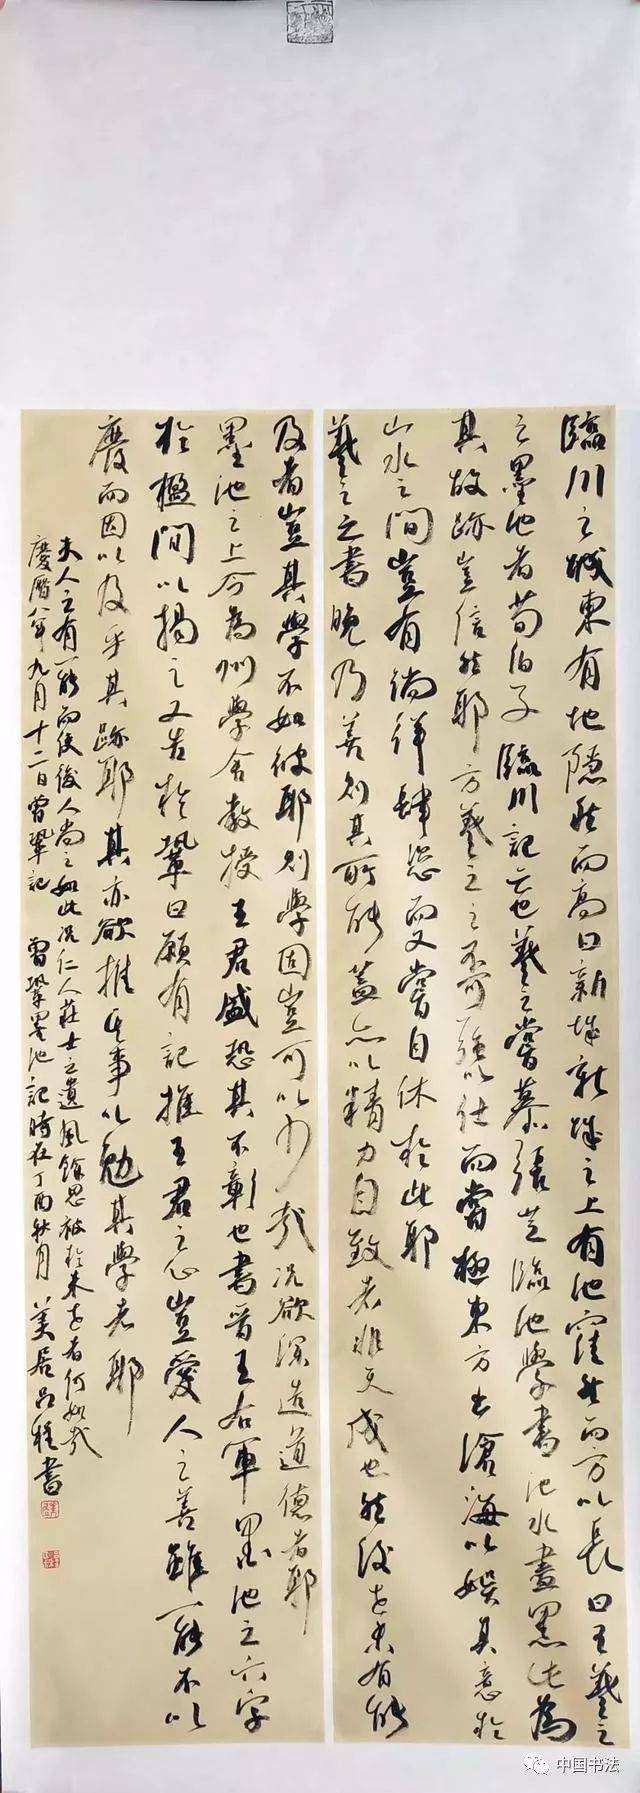 臨川之城東有地隱然而高曰新城新城之上有池窪然而方以長曰王羲之
之墨池者荀伯子臨川記云也羲之嘗慕張芝臨池學書池水盡黑此為
其故跡豈信然耶方羲之之不可強以仕而嘗極東方出滄海以娛其意於
山水之間豈有徜徉肆恣而又嘗自休於此耶
羲之之書晚乃善則其所能蓋亦以精力自致者非天成也然後世未有能
及者豈其學不如彼耶則學固豈可以少哉况欲深造道德者耶
墨池之上今為州學舍教授王君盛恐其不彰也書晉王右軍墨池之六字
於楹間以揭之又告於鞏曰願有記推王君之心豈愛人之善雖一能不以
廢而因以及乎其跡耶其亦欲推其事以勉其學者耶
夫人之有一能而使後人尚之如此况仁人莊士之遺風餘思被於来世者何如哉
慶曆八年九月十二日曾鞏記 曾鞏墨池記時在丁酉秋月 美居 書
中国书法